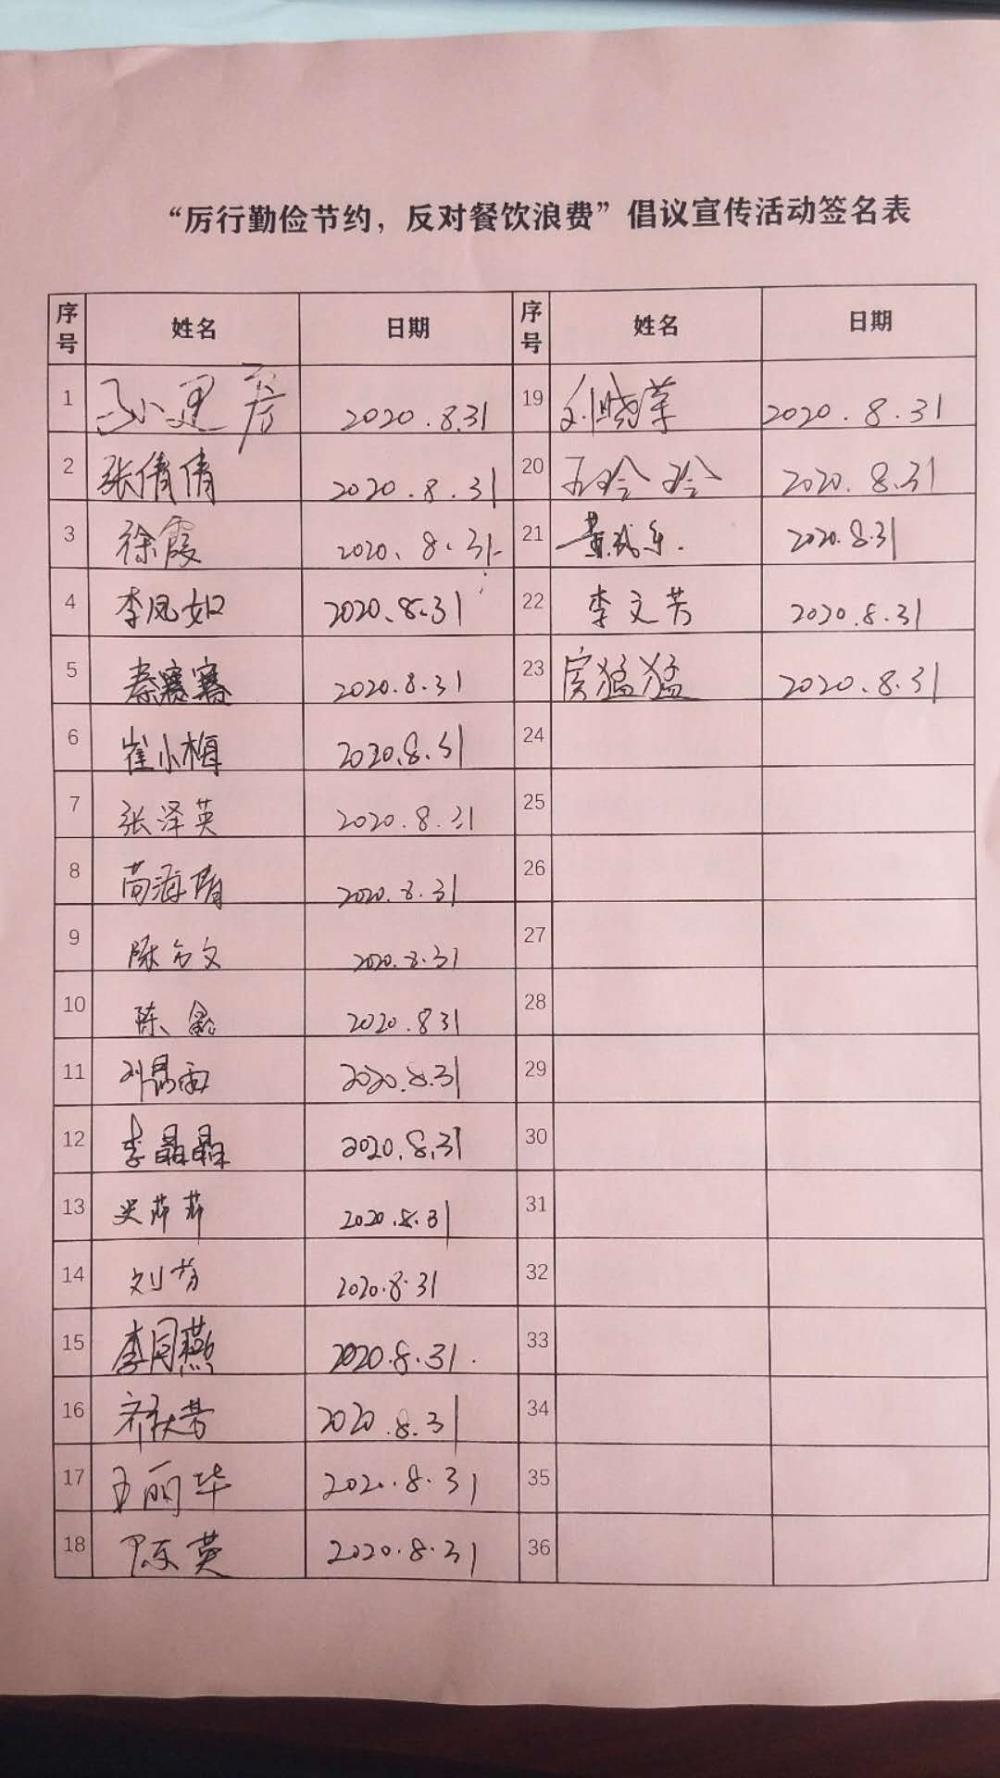 “厉行勤俭节约，反对餐饮浪费”倡议宣传活动签名表
序号 姓名 日期 序号 姓名 日期
1 2020.8.31 19 刘晓荣 2020.8.31
2 张倩倩 2020.8.31 20 王玲玲 2020.8.31
3 徐霞 2020.8.31 21 2020.8.31
4 李凤如 2020.8.31 22 李文芳 2020.8.31
5 秦赛赛 2020.8.31 23 房猛猛 2020.8.31
6 崔小梅 2020.8.31 24
7 张泽英 2020.8.31 25
8 苘海倩 2020.8.31 26
9 2020.8.31 27
10 陈 2020.831 28
11 2020.8.31 29
12 李晶晶 2020.8.31 30
13 史萍萍 2020.8.31 31
14 刘芳 2020.8.31 32
15 李月燕 2020.8.31. 33
16 齐秋芳 2020.8.31 34
17 王丽华 2020.8.31 35
18 陈英 2020.8.31 36